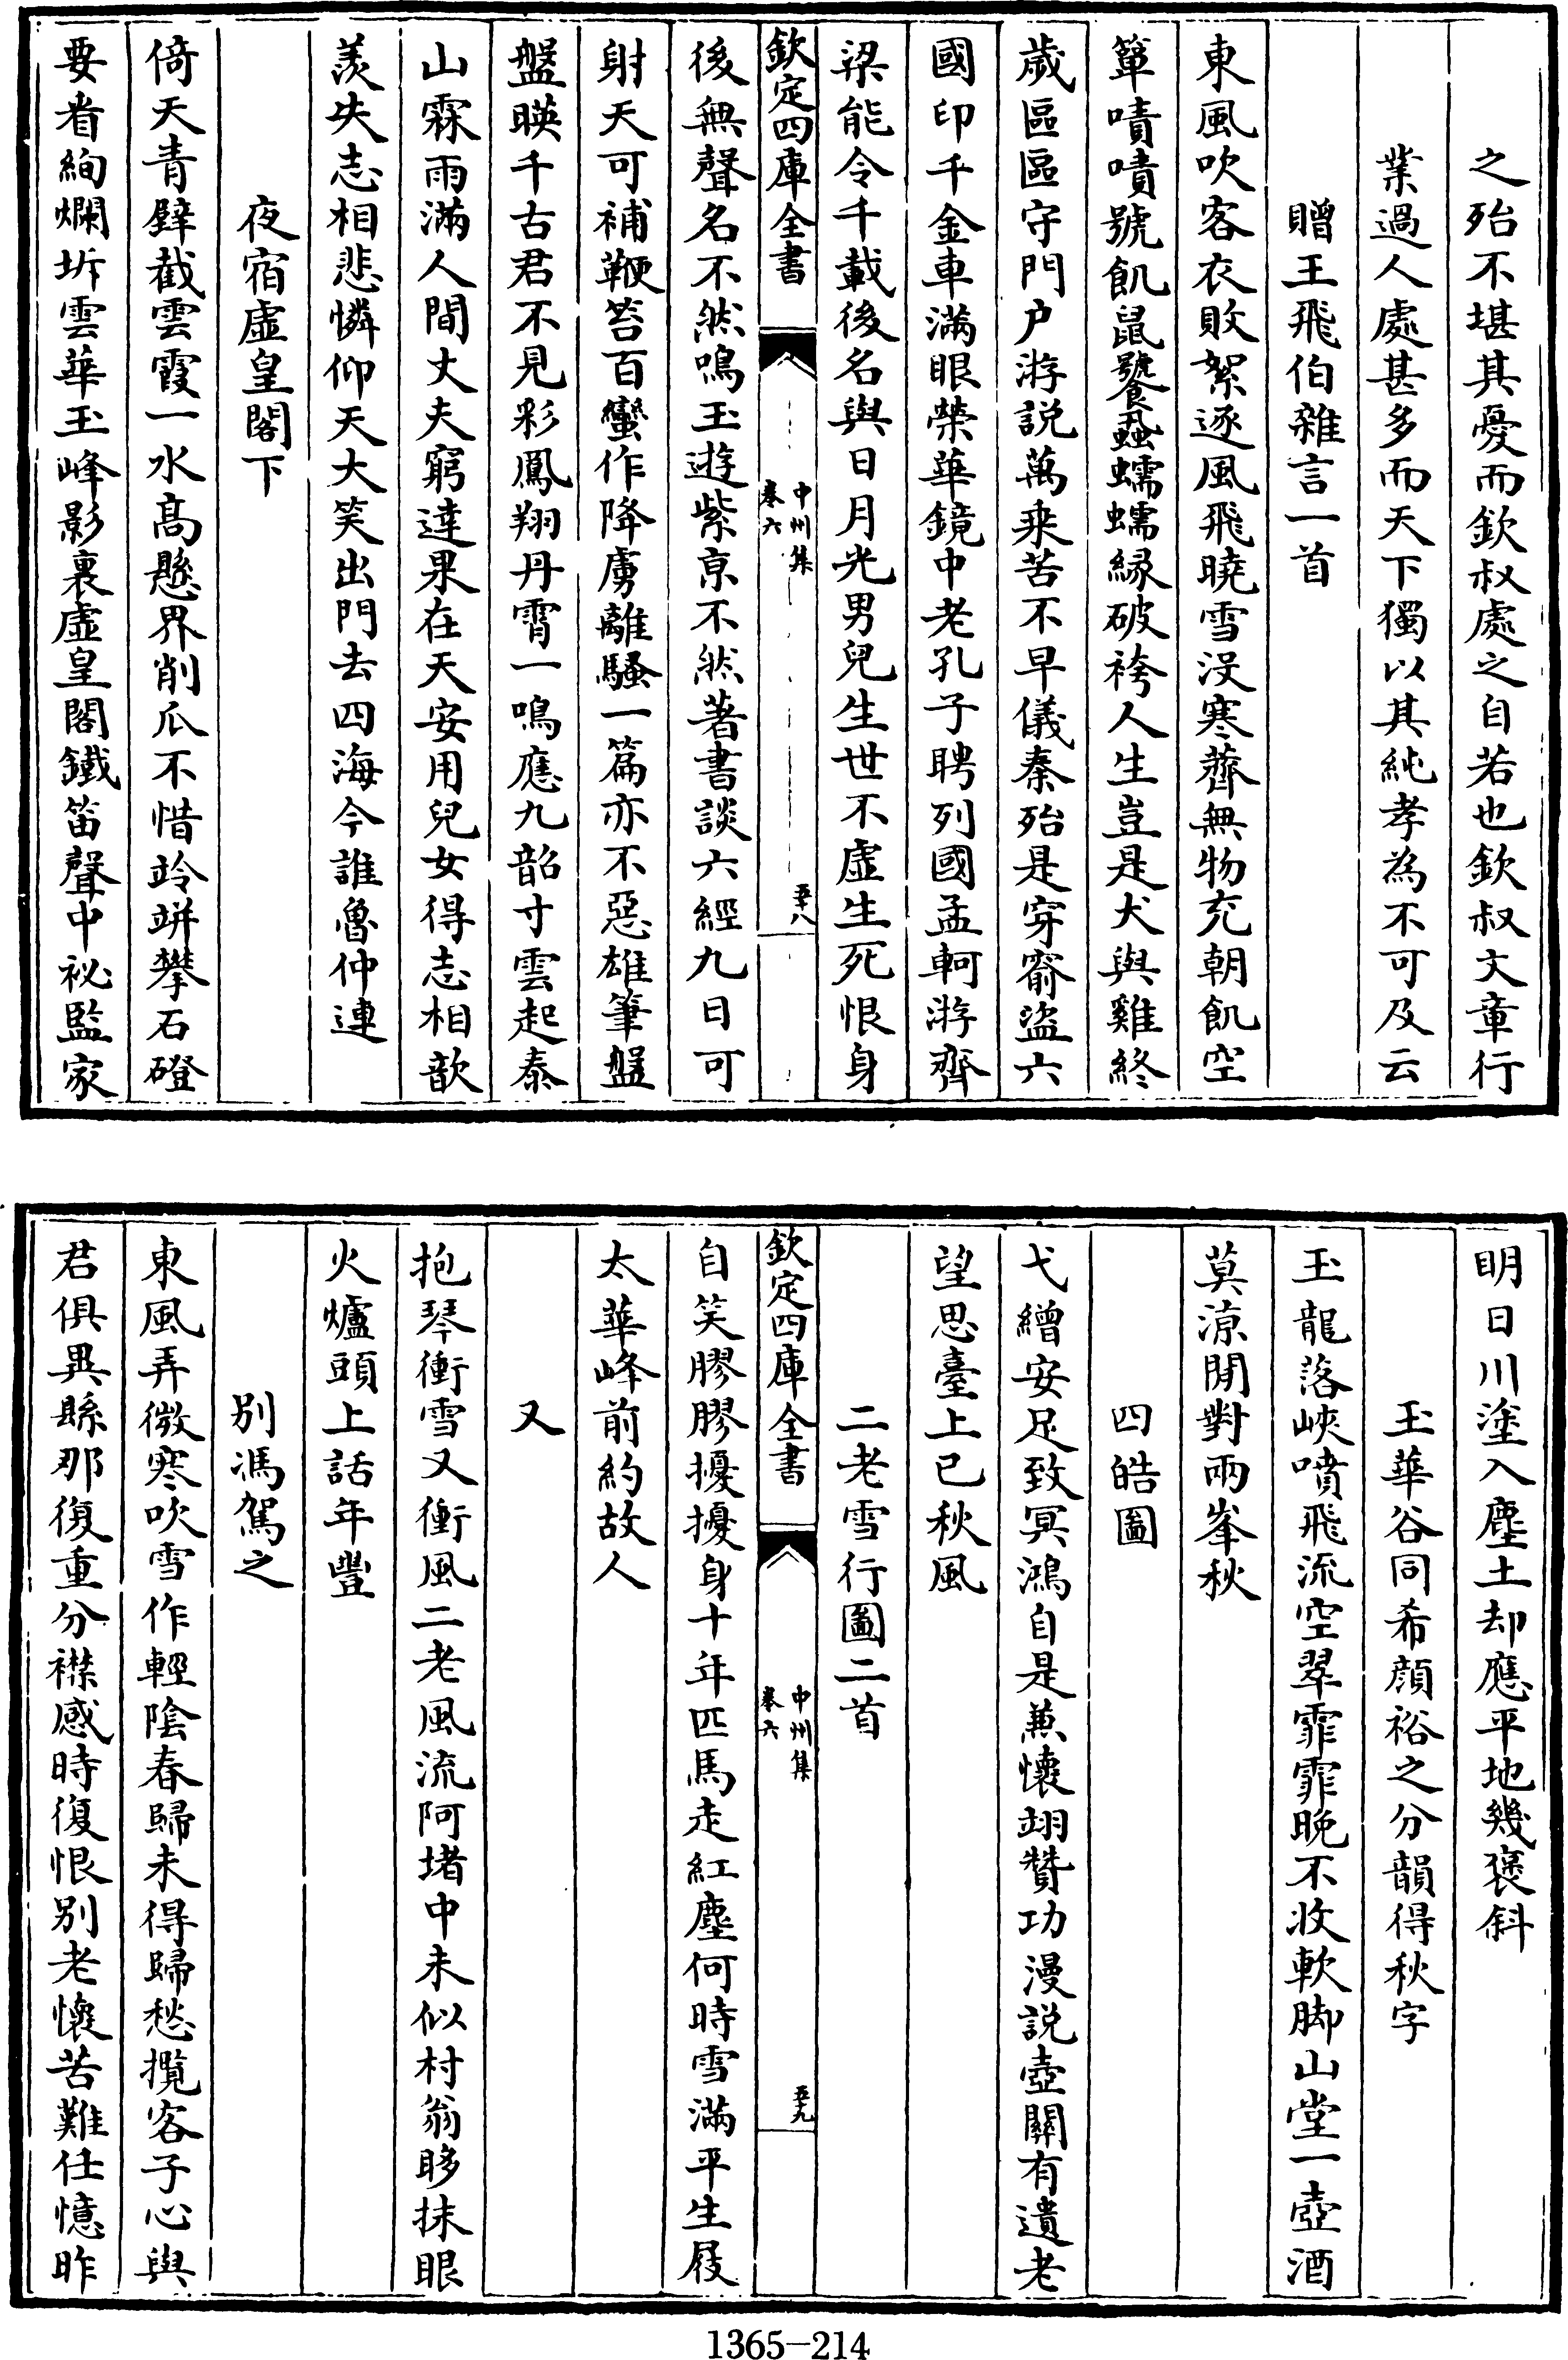 之殆不堪其憂而欽叔處之自若也欽叔文章行
業過人處甚多而天下獨以其純孝為不可及云
贈王飛伯雜言一首
東風吹客衣敗絮逐風飛曉雪没寒虀無物充朝飢空
簞嘖嘖號飢鼠饕蝨蠕蠕緣破袴人生豈是犬與雞終
歲區區守門户游説萬乘苦不早儀秦殆是穿窬盜六
國印千金車滿眼榮華鏡中老孔子聘列國孟軻游齊
梁能令千載後名與日月光男兒生世不虛生死恨身
欽定四庫全書
中州集
卷六
五十八
後無聲名不然鳴玉遊紫京不然著書談六經九日可
射天可補鞭笞百蠻作降虜離騷一篇亦不惡雄筆盤
盤暎千古君不見彩鳳翔丹霄一鳴應九韶寸雲起泰
山霖雨滿人間丈夫窮達果在天安用兒女得志相歆
羨失志相悲憐仰天大笑出門去四海今誰魯仲連
夜宿虛皇閣下
倚天青壁截雲霞一水高懸界削瓜不惜竛竮攀石磴
要看絢爛坼雲華玉峰影裏虛皇閣鐵笛聲中祕監家
明日川塗入塵土却應平地幾褒斜
玉華谷同希顔裕之分韻得秋字
玉龍落峽噴飛流空翠霏霏晚不收軟脚山堂一壺酒
莫涼閒對兩峯秋
四皓圖
弋繒安足致冥鴻自是兼懷翊贊功漫説壺關有遺老
望思臺上已秋風
二老雪行圖二首
欽定四庫全書
中州集
卷六
五十九
自笑膠膠擾擾身十年匹馬走紅塵何時雪滿平生屐
太華峰前約故人
又
抱琴衝雪又衝風二老風流阿堵中未似村翁眵抹眼
火爐頭上話年豐
別馮駕之
東風弄微寒吹雪作輕陰春歸未得歸愁攬客子心與
君俱異縣那復重分襟感時復恨别老懷苦難任憶昨
1365-214